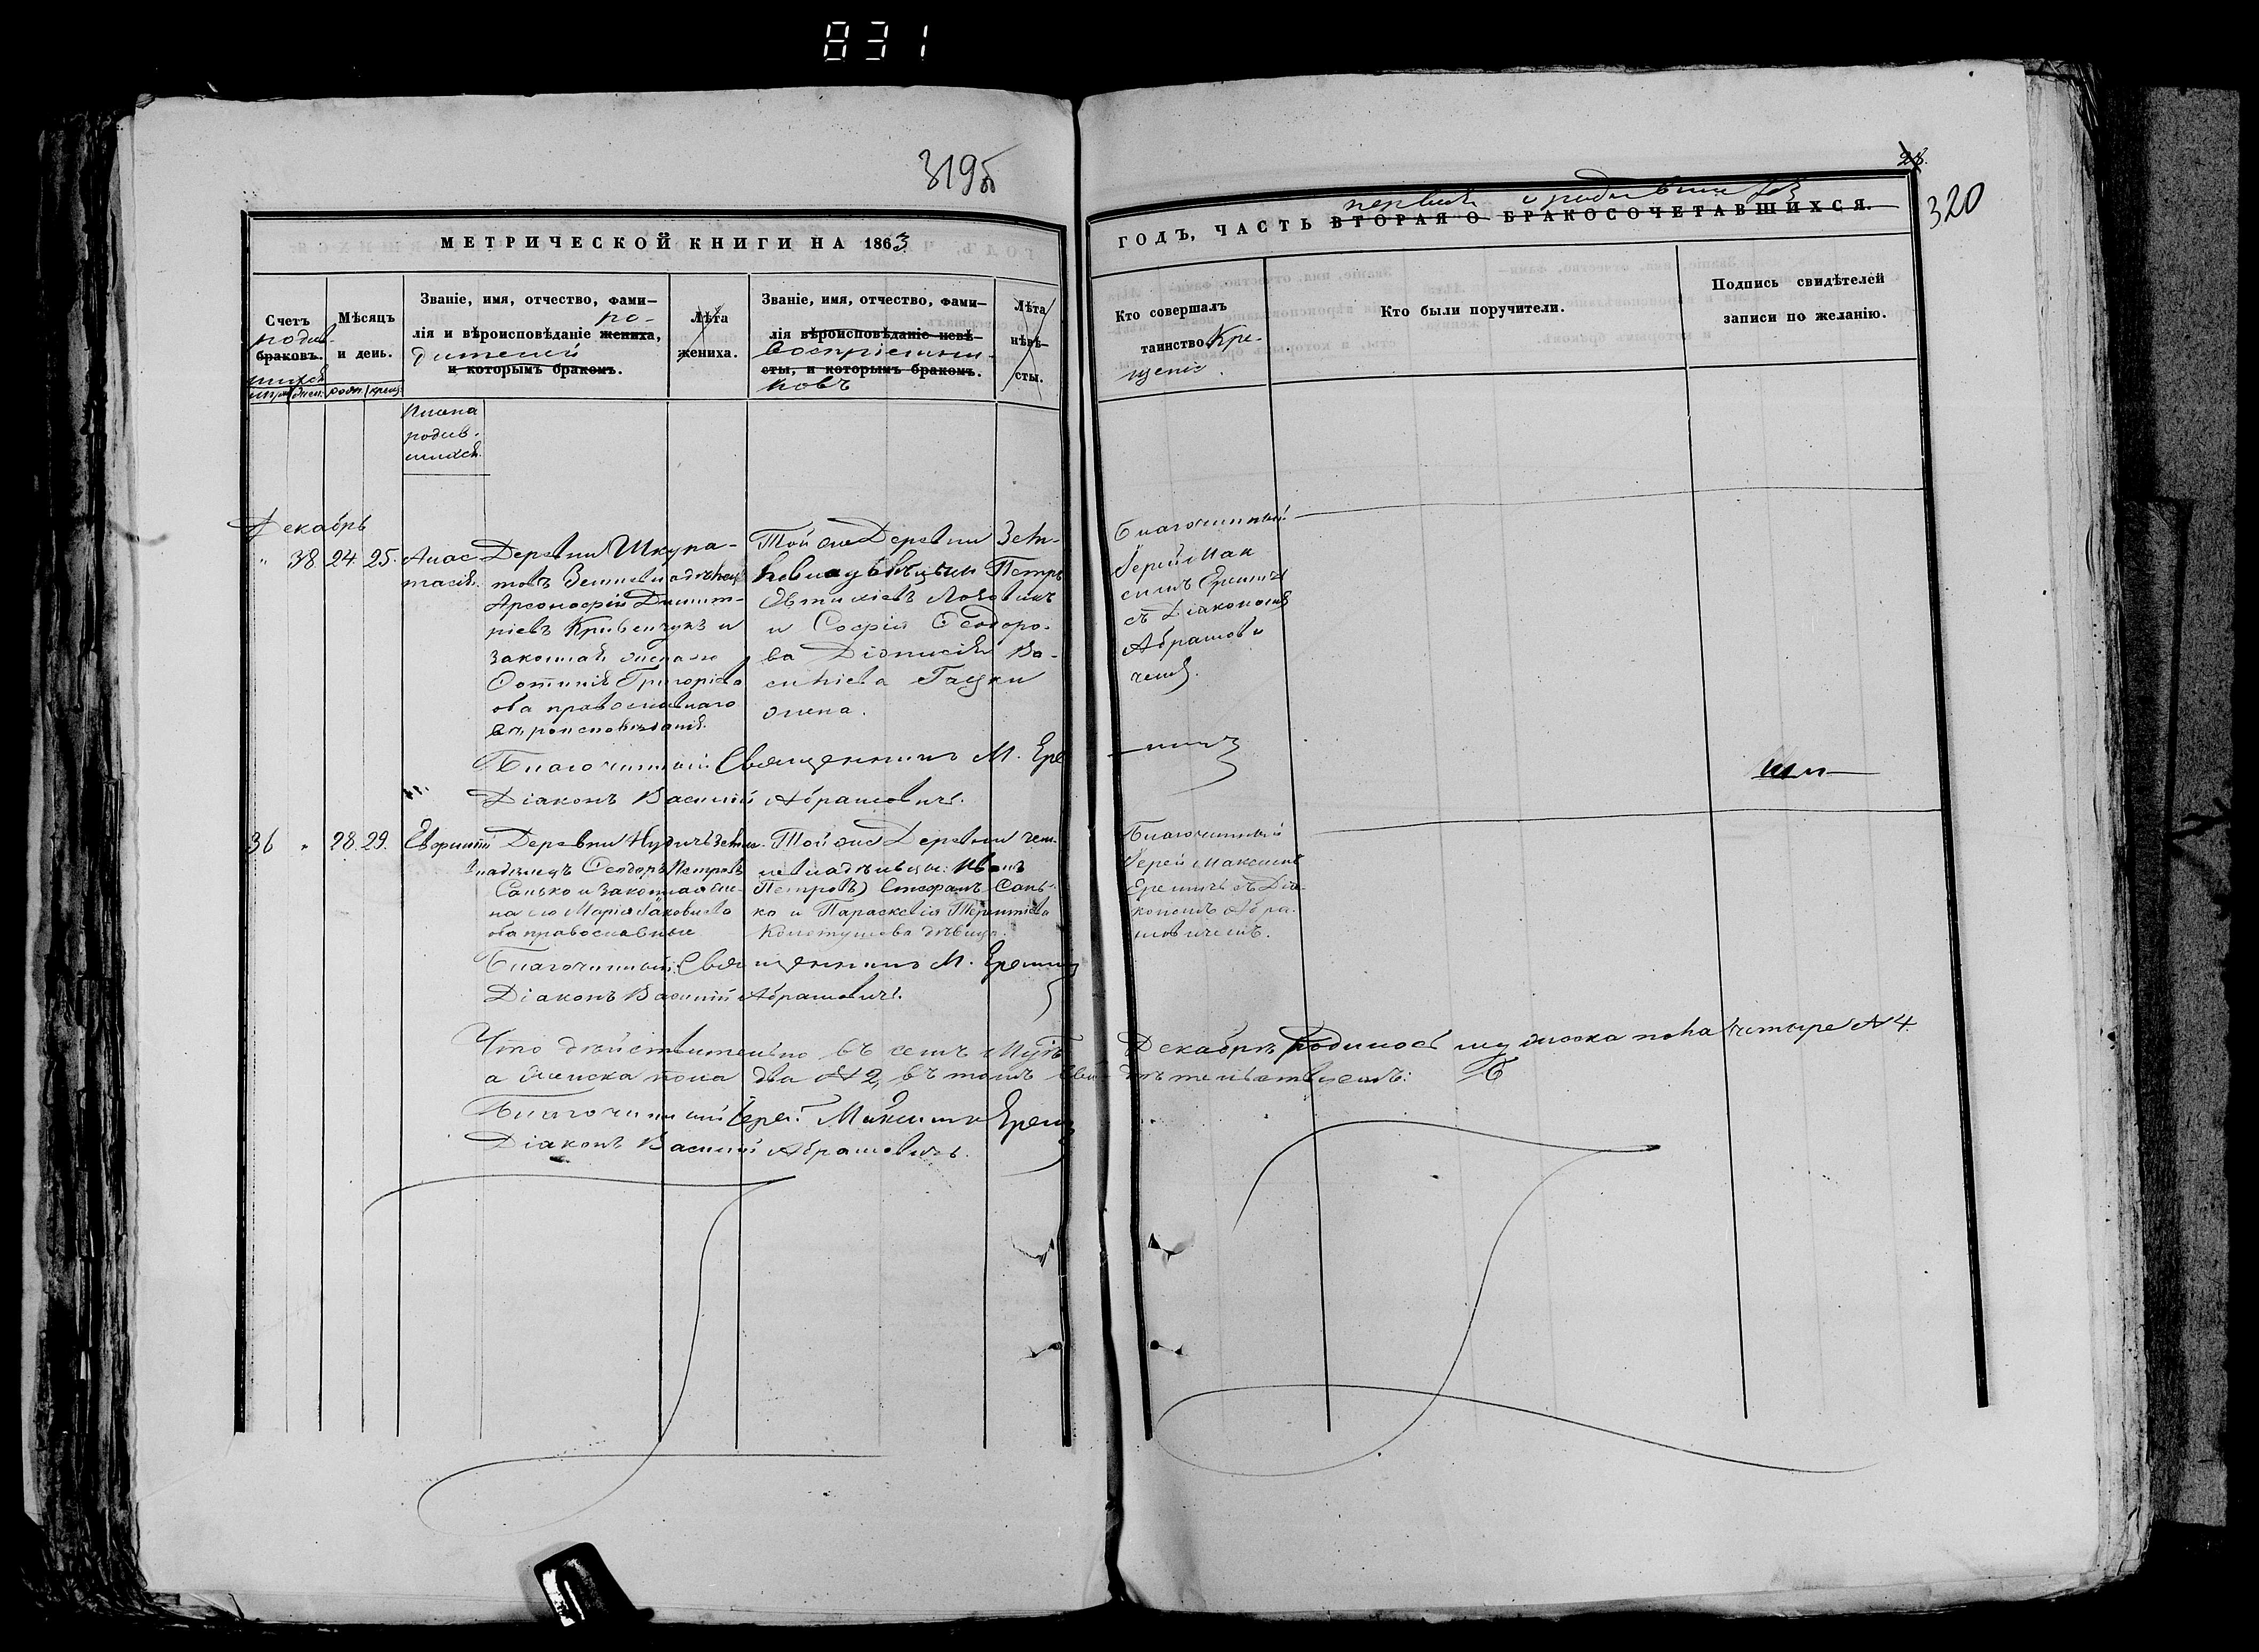 831
319б
28.
320
МЕТРИЧЕСКОЙ КНИГИ НА 1863
ГОДЪ, ЧАСТЬ ВТОРАЯ О БРАКОСОЧЕТАВШИХСЯ.
первая о родившихся
Счетъ
родив-
браковъ.
шихся
Мѣсяцъ
и день.
родж. крещ.
Званіе, имя, отчество, фами-
лія и вѣроисповѣданіе жениха,
ро-
дителей
и которымъ бракомъ.
Лѣта
жениха.
Званіе, имя, отчество, фами-
лія вѣроисповѣданіе невѣ-
воспріемни-
сты, и которымъ бракомъ.
ковъ
Лѣта
невѣ-
сты.
Кто совершалъ
таинство Кре-
щенія.
Кто были поручители.
Подпись свидѣтелей
записи по желанію.
Имена
родив-
шихся.
Декабрь
" 38 24. 25.
Анас
тасія.
Деревни Шкура-
товъ
Димит-
ріевъ Кривенчукъ и
законная жена его
Фотинія Григоріева
оба православнаго
вѣроисповѣданія.
Той же Деревни Зем-
Петръ
Евтихіевъ
и Софія Ѳеодоро-
ва Діонисія Ва-
силіева Гацки
жена.
Благочинный
Іерей Мак
симъ Еремичъ
съ Діакономъ
Абрамови
чемъ.
Благочинный Священникъ М. Ере
мичъ
Діаконъ Василій Абрамовичъ.
36 " 28. 29.
Евфимій
Деревни Нудичъ Земле-
владѣлецъ Ѳеодоръ Петровъ
Санько и законная же-
на его Марія Іаковлева
оба православные
Той же Деревни Зем-
левладѣльцы: Иванъ
Петровъ) Стефанъ Сань-
ко и Параскевія Терентіева
дѣвица.
Благочинный
Іерей Максимъ
Еремичъ съ Діа-
кономъ Абра-
мовичемъ.
Благочинный Священникъ М. Еремичъ
Діаконъ Василій Абрамовичъ.
Что дѣйствительно въ семъ Мцѣ Декабрѣ родилось мужеска пола четыре № 4
а женска пола два № 2, въ томъ свидѣтельствуемъ:
Благочинный Іерей Максимъ Еремичъ
Діаконъ Василій Абрамовичъ.